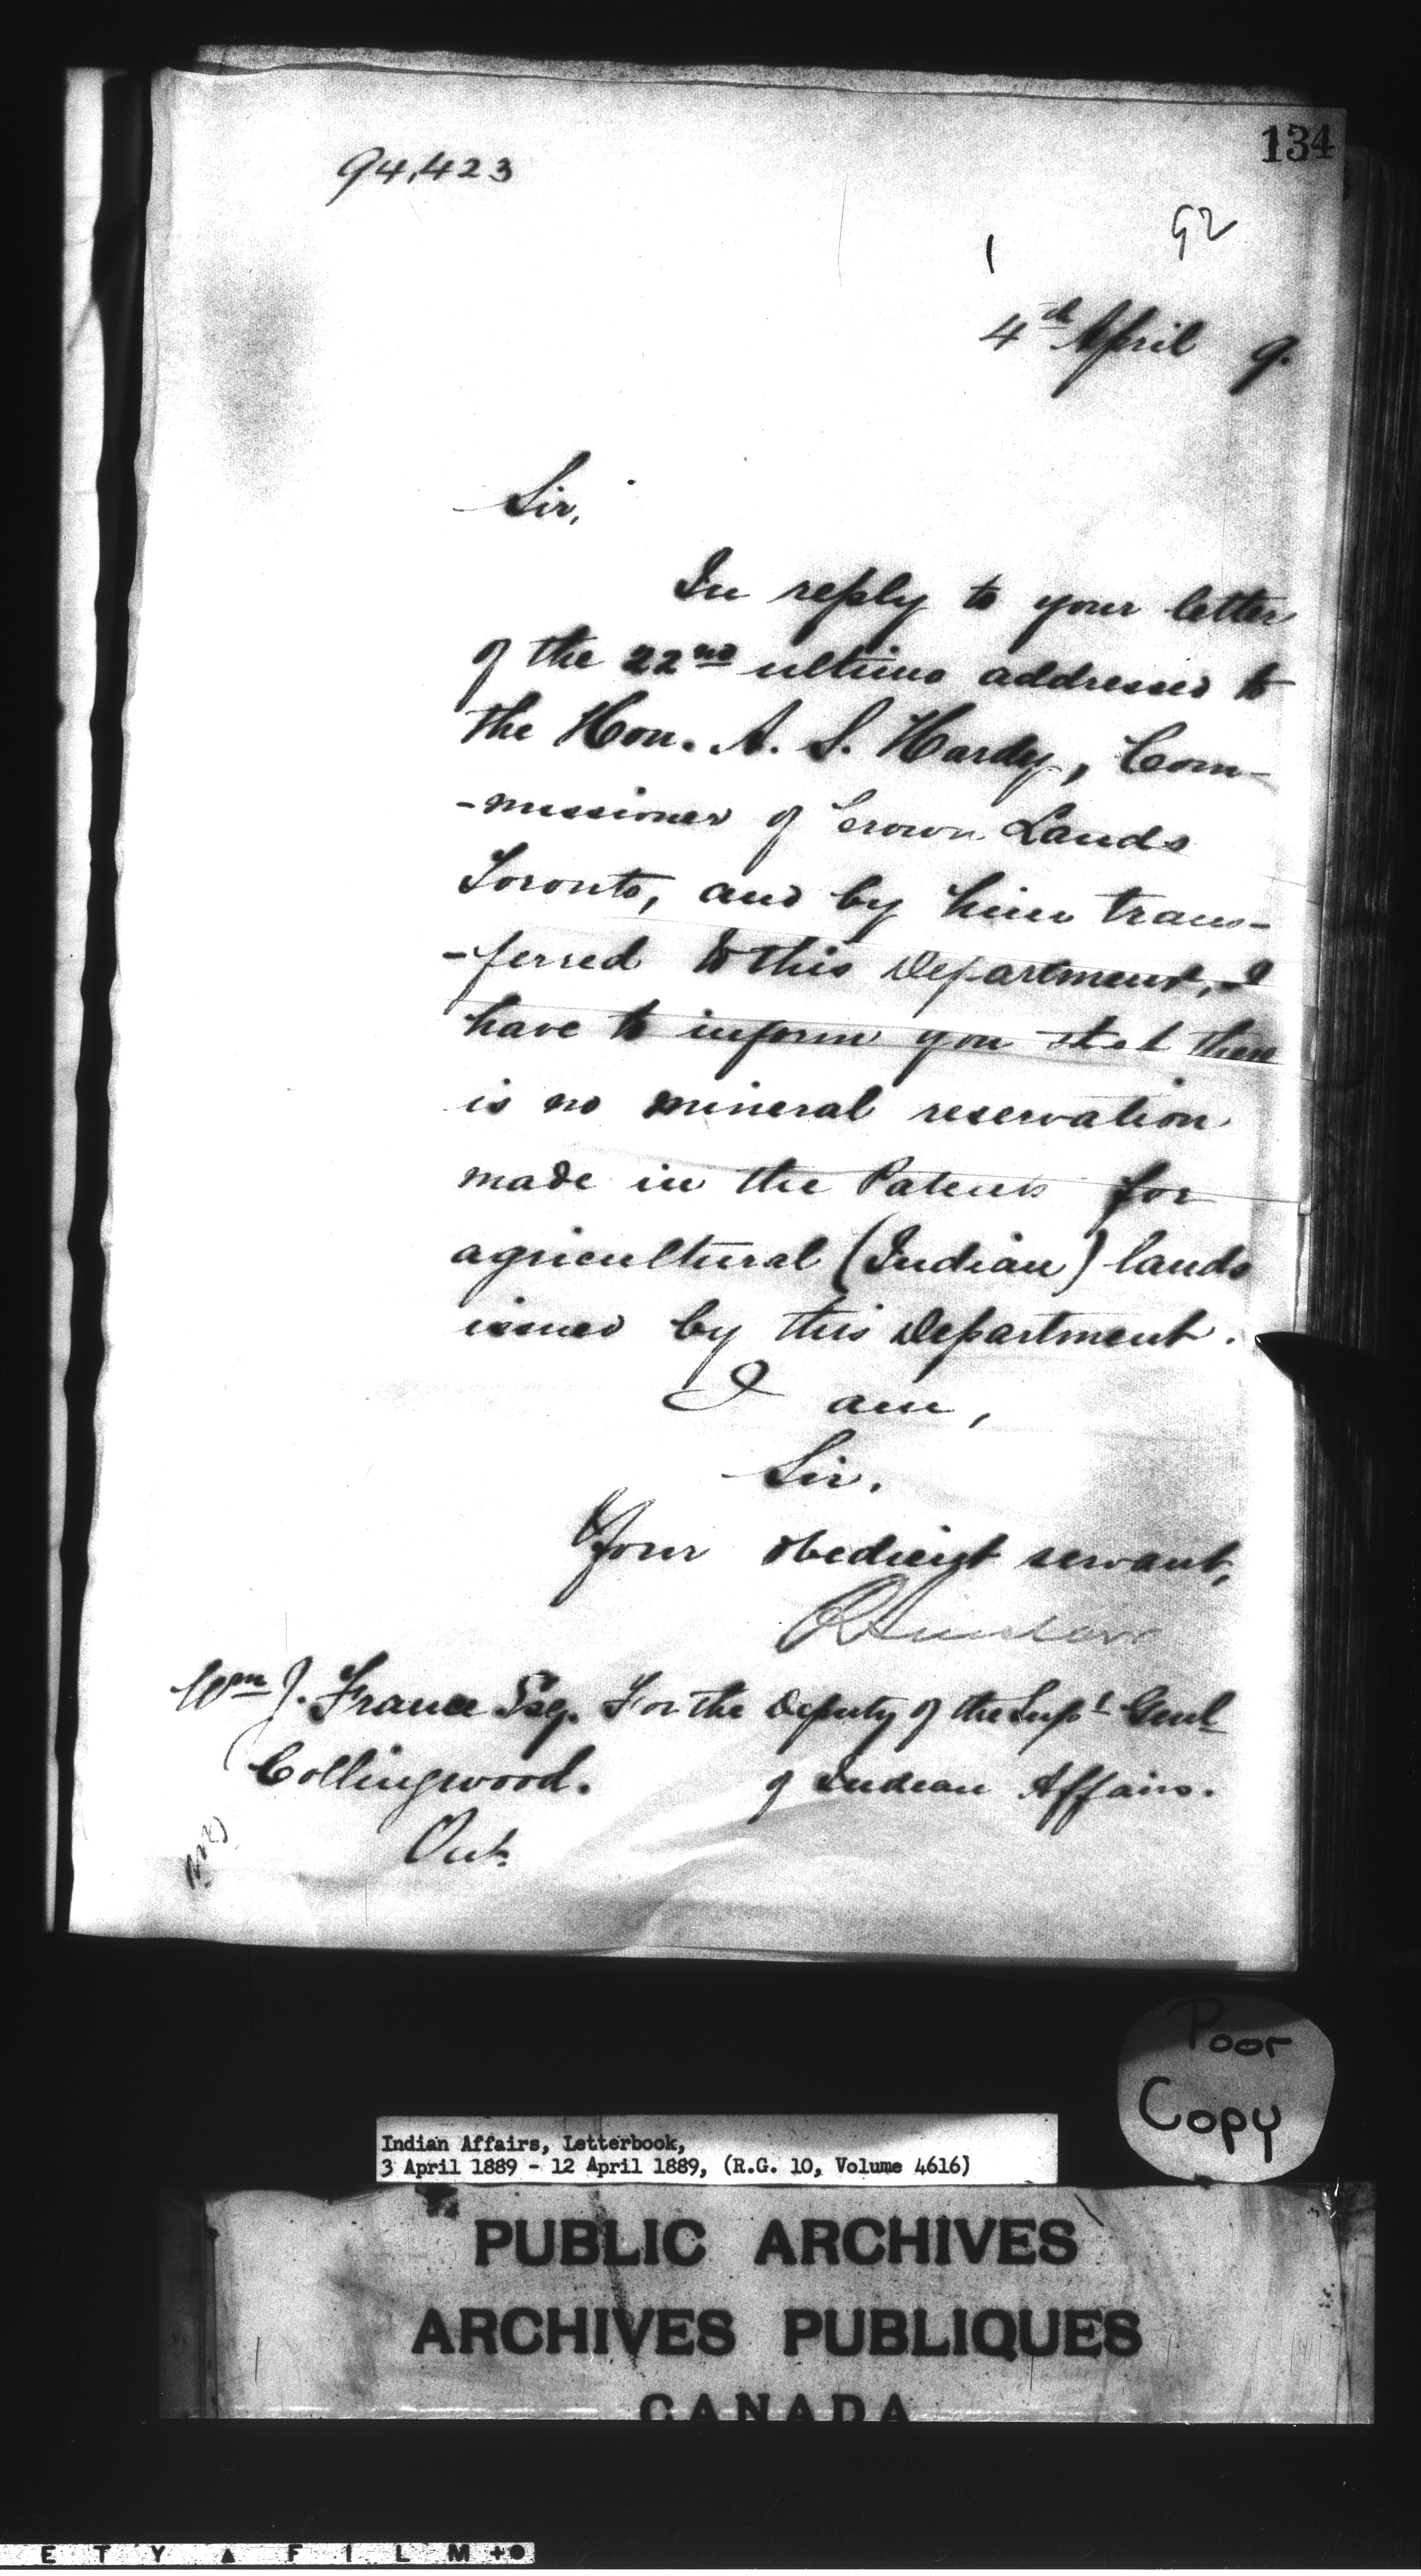 134
94,423
92
4th April 9.
Sir,
In reply to your letter
of the 22nd ultimo addressed to
the Hon. A. S. Hardy, Com-
-missioner of Crown Lands
Toronto, and by him trans-
-ferred to this Department, I
have to inform you that there
is no mineral reservation
made in the Patents for
agricultural (Indian) lands
issued by this Department.
I am,
Sir.
Your obedient servant,
R Sinclair
Wm J. France Esq. For the Deputy of the Supt Genl
Collingwood. of Indian Affairs.
Ont.
Poor
Copy
Indian Affairs, Letterbook,
3 April 1889 - 12 April 1889, (R.G. 10, Volume 4616)
PUBLIC ARCHIVES
ARCHIVES PUBLIQUES
CANADA
E T Y ▲ F I L M